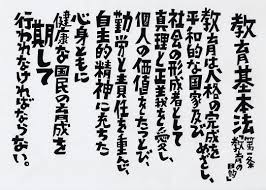 教育基本法
第一条
教育の目的
教育は人格の完成をめざし、
平和的な国家及び
社会の形成者として
真理と正義を愛し、
個人の価値をたっとび、
勤労と責任を重んじ、
自主的精神に充ちた
心身ともに
健康な国民の育成を
期して
行われなければならない。